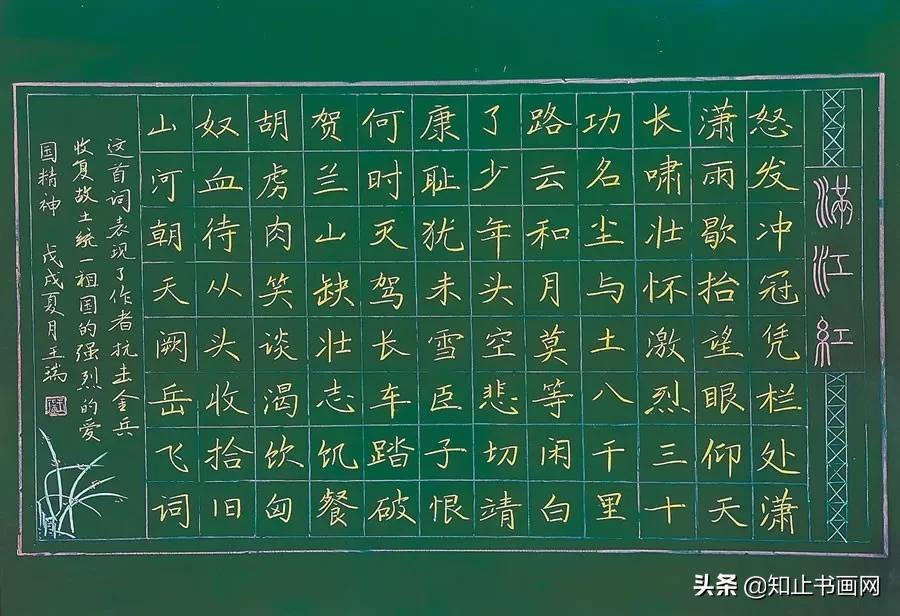 滿江紅
怒发冲冠凭栏处潇
潇雨歇抬望眼仰天
长啸壮怀激烈三十
功名尘与土八千里
路云和月莫等闲白
了少年头空悲切靖
康耻犹未雪臣子恨
何时灭驾长车踏破
贺兰山缺壮志饥餐
胡虏肉笑谈渴饮匈
奴血待从头收拾旧
山河朝天阙岳飞词
这首词表现了作者抗击金兵
收复故土统一祖国的强烈的爱
国精神 戊戌夏月王瑞
头条 @知止书画网